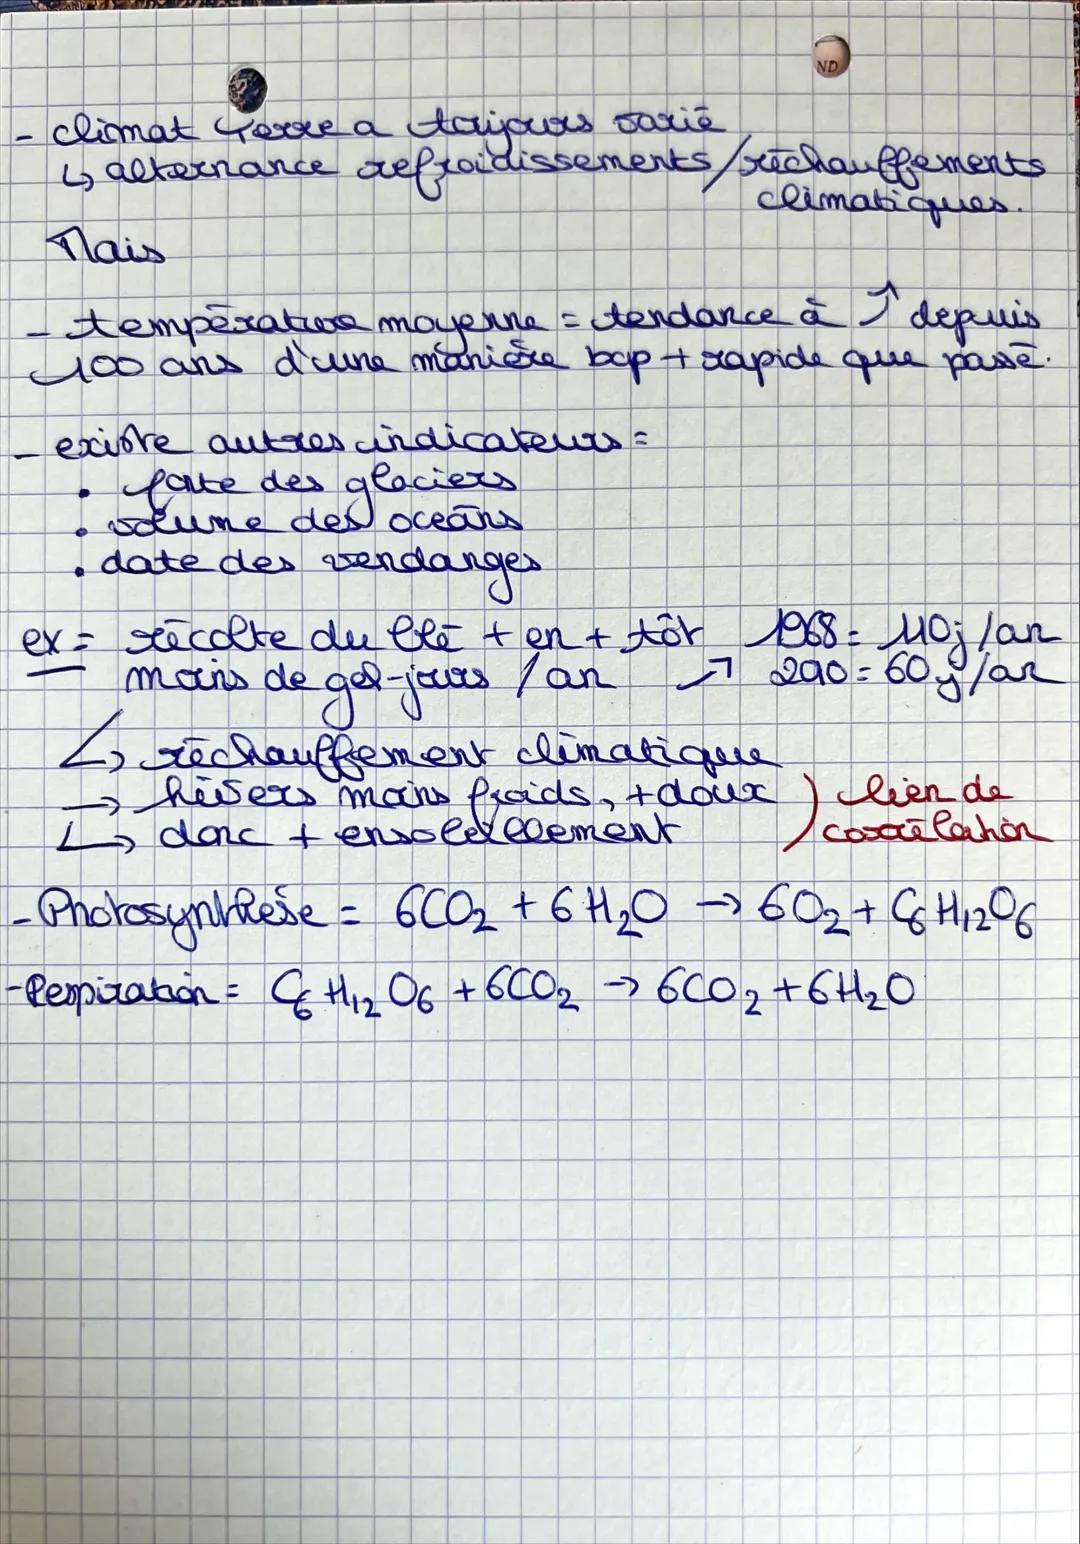 ND
- climat Terre a toujours varié
↳ alternance refroidissements/réchauffements
climatiques.
Mais
- température moyenne = tendance à ↗ depuis
100 ans d'une manière bcp + rapide que passé.
- existe autres indicateurs =
• fonte des glaciers
• volume des océans
• date des vendanges
ex = récolte du blé + en + tôt 1968 = 110j/an
moins de gel-jours /an → 2010 = 60j/an
↳ réchauffement climatique
→ hivers moins froids, + doux ) lien de
↳ donc + ensoleillement ) corrélation
- Photosynthèse = 6CO₂ + 6H₂O → 6O₂ + C₆H₁₂O₆
- Respiration = C₆H₁₂O₆ + 6CO₂ → 6CO₂ + 6H₂O